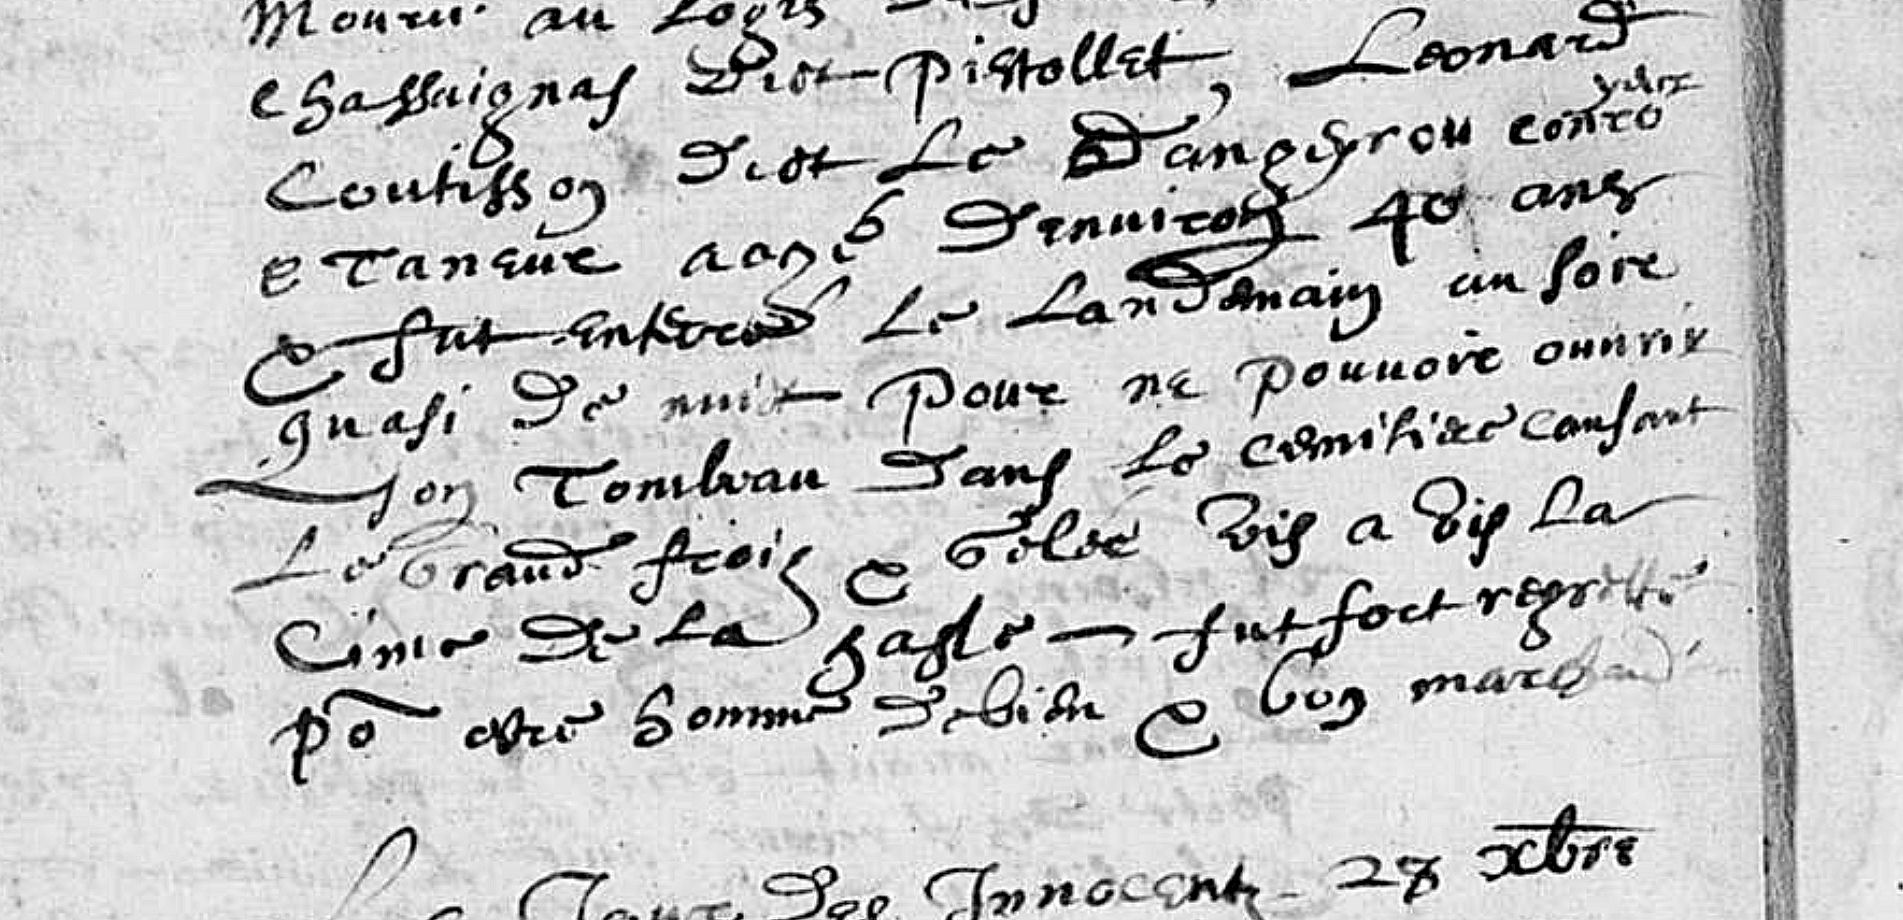 Mourut au Logis
Chassaignas dict pistollet, Leonard
yeur
Coutisson dict Le Dangeyrou conro
& Taneur aagé denuiron 40 ans
& fut enterré Le Landemain au soir
quasi de nuict pour ne pouuoir ouurir
son Tombeau dans Le cemitiere causant
Le Grand froit & Gelée vis a vis La
Cime de La hasle fut fort regretté
po estre homme de bien & bon marchand
Jour des Innocents 28 xbre